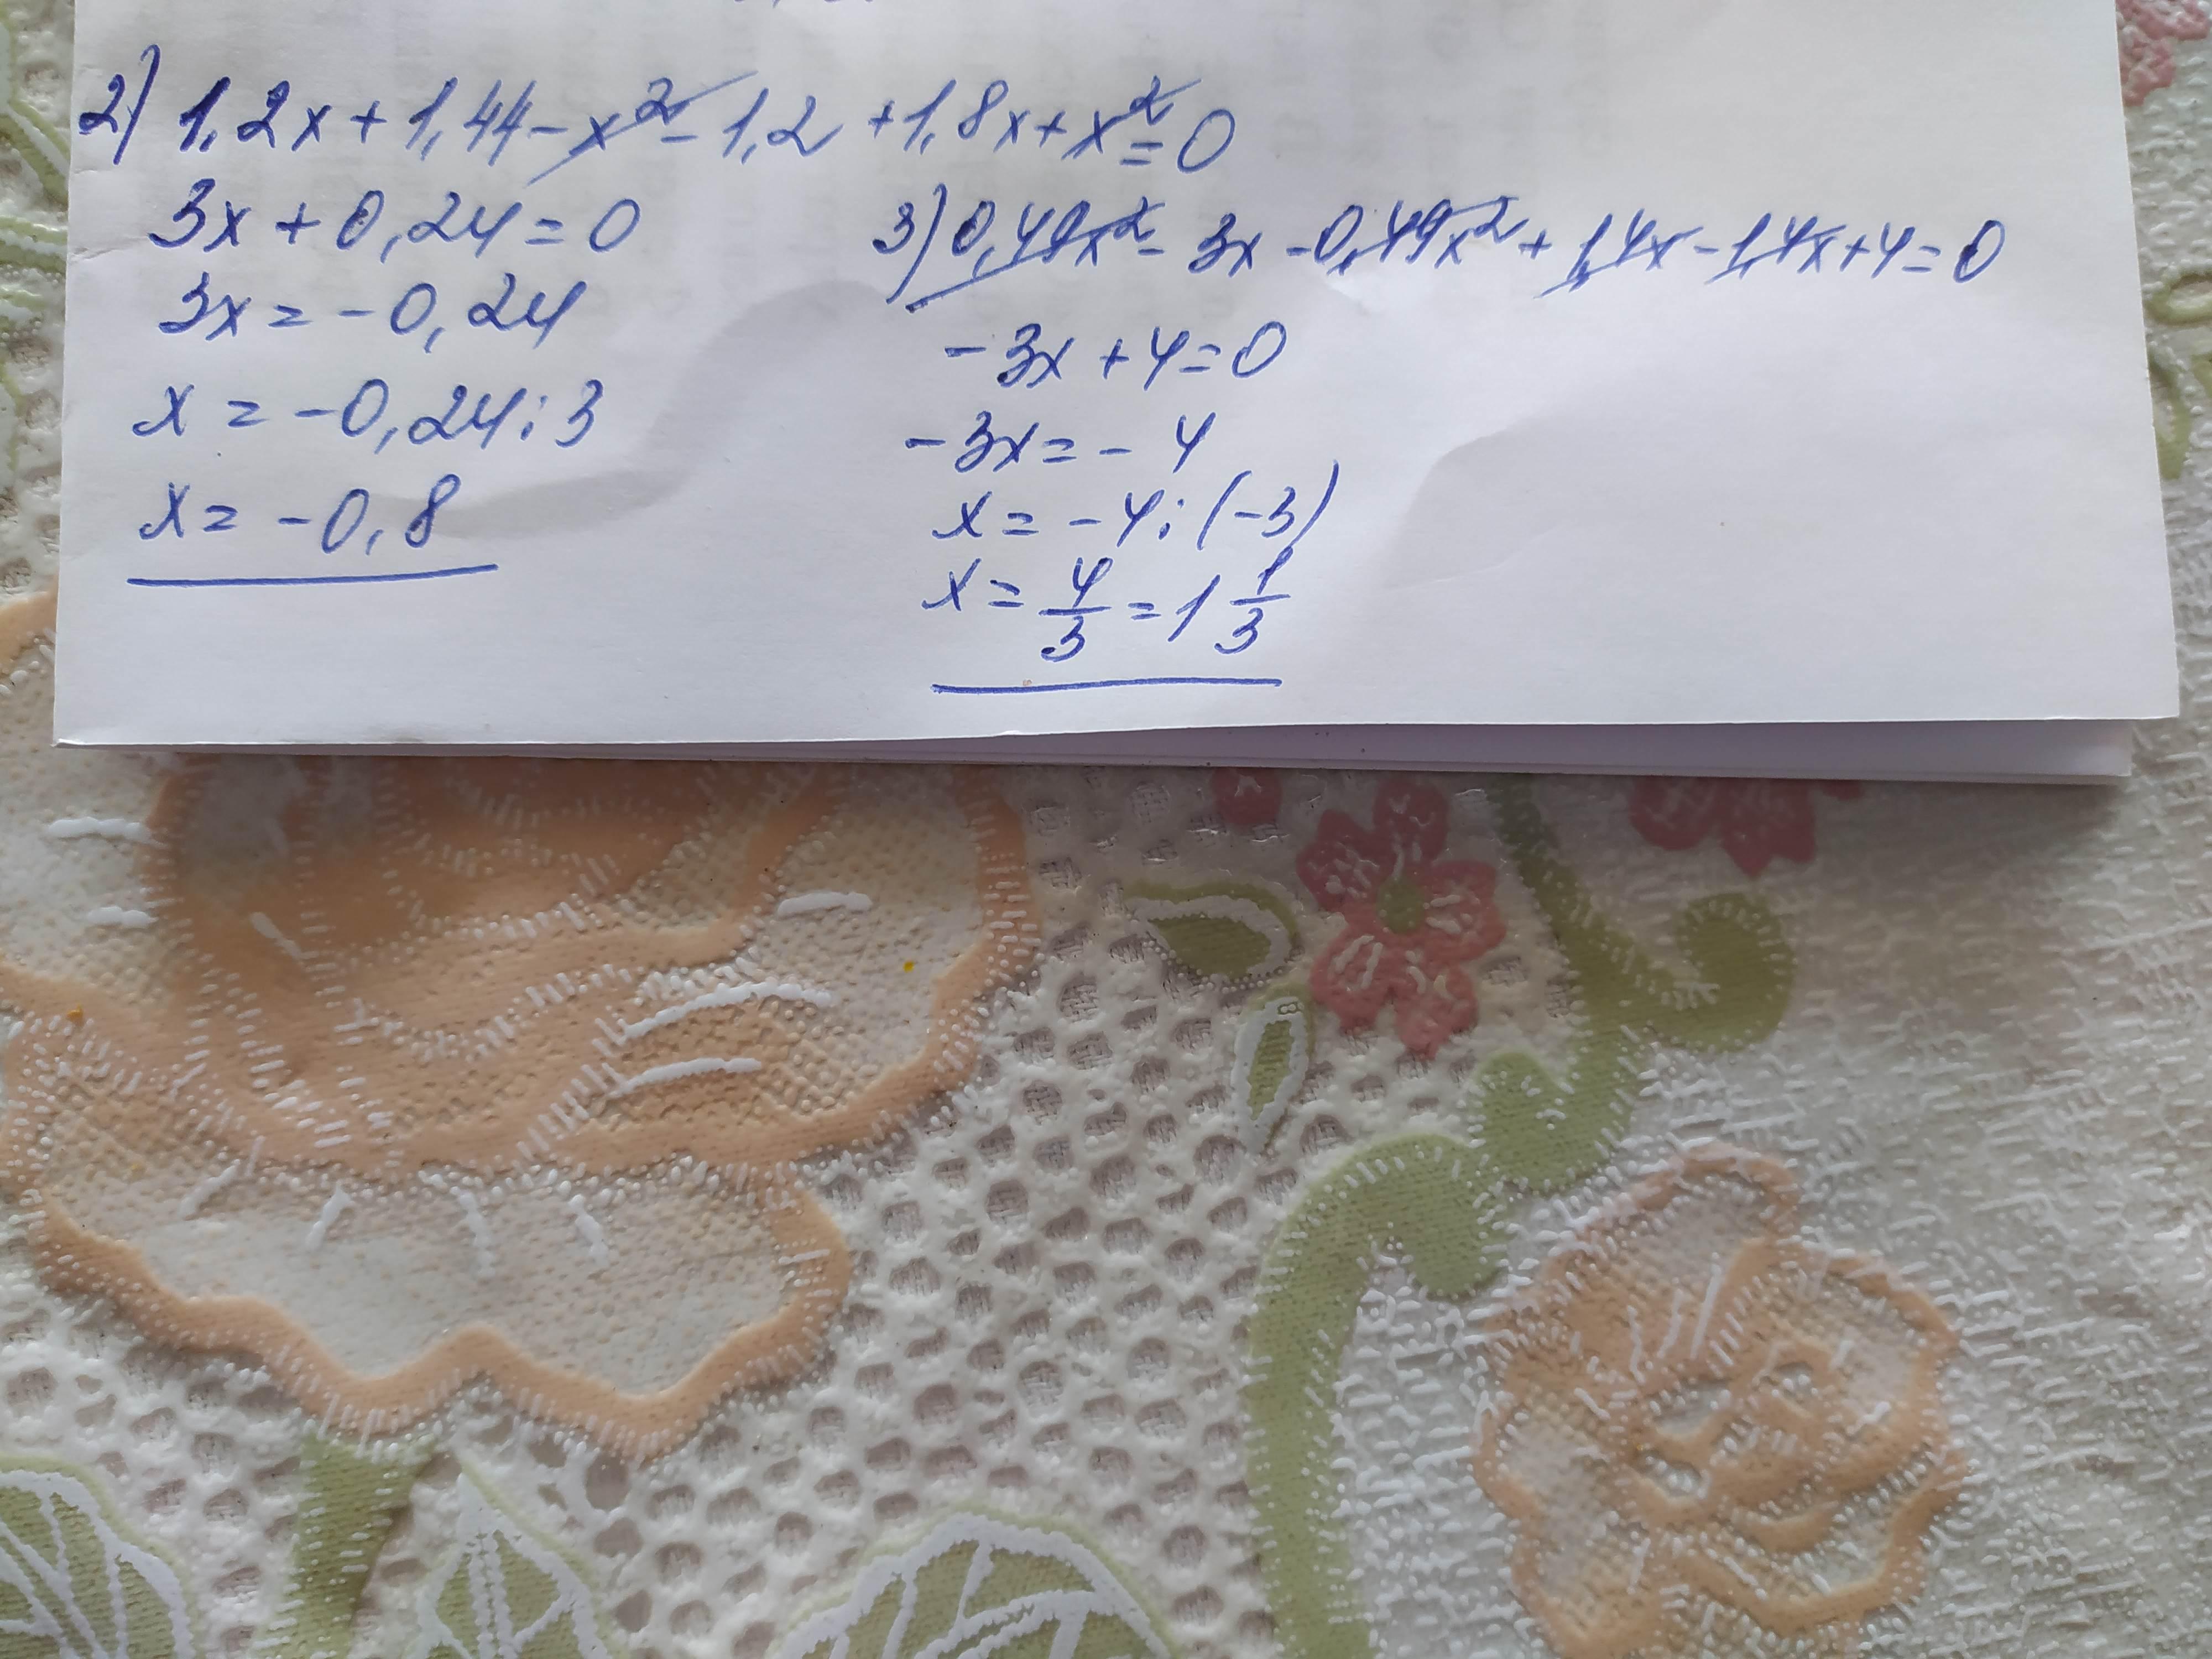 2) 1,2x + 1,44 - x² - 1,2 + 1,8x + x² = 0
3x + 0,24 = 0
3x = - 0,24
x = - 0,24 : 3
x = - 0,8
3) 0,49x² - 3x - 0,49x² + 1,4x - 1,4x + 4 = 0
- 3x + 4 = 0
- 3x = - 4
x = - 4 : (-3)
x = 4/3 = 1 1/3